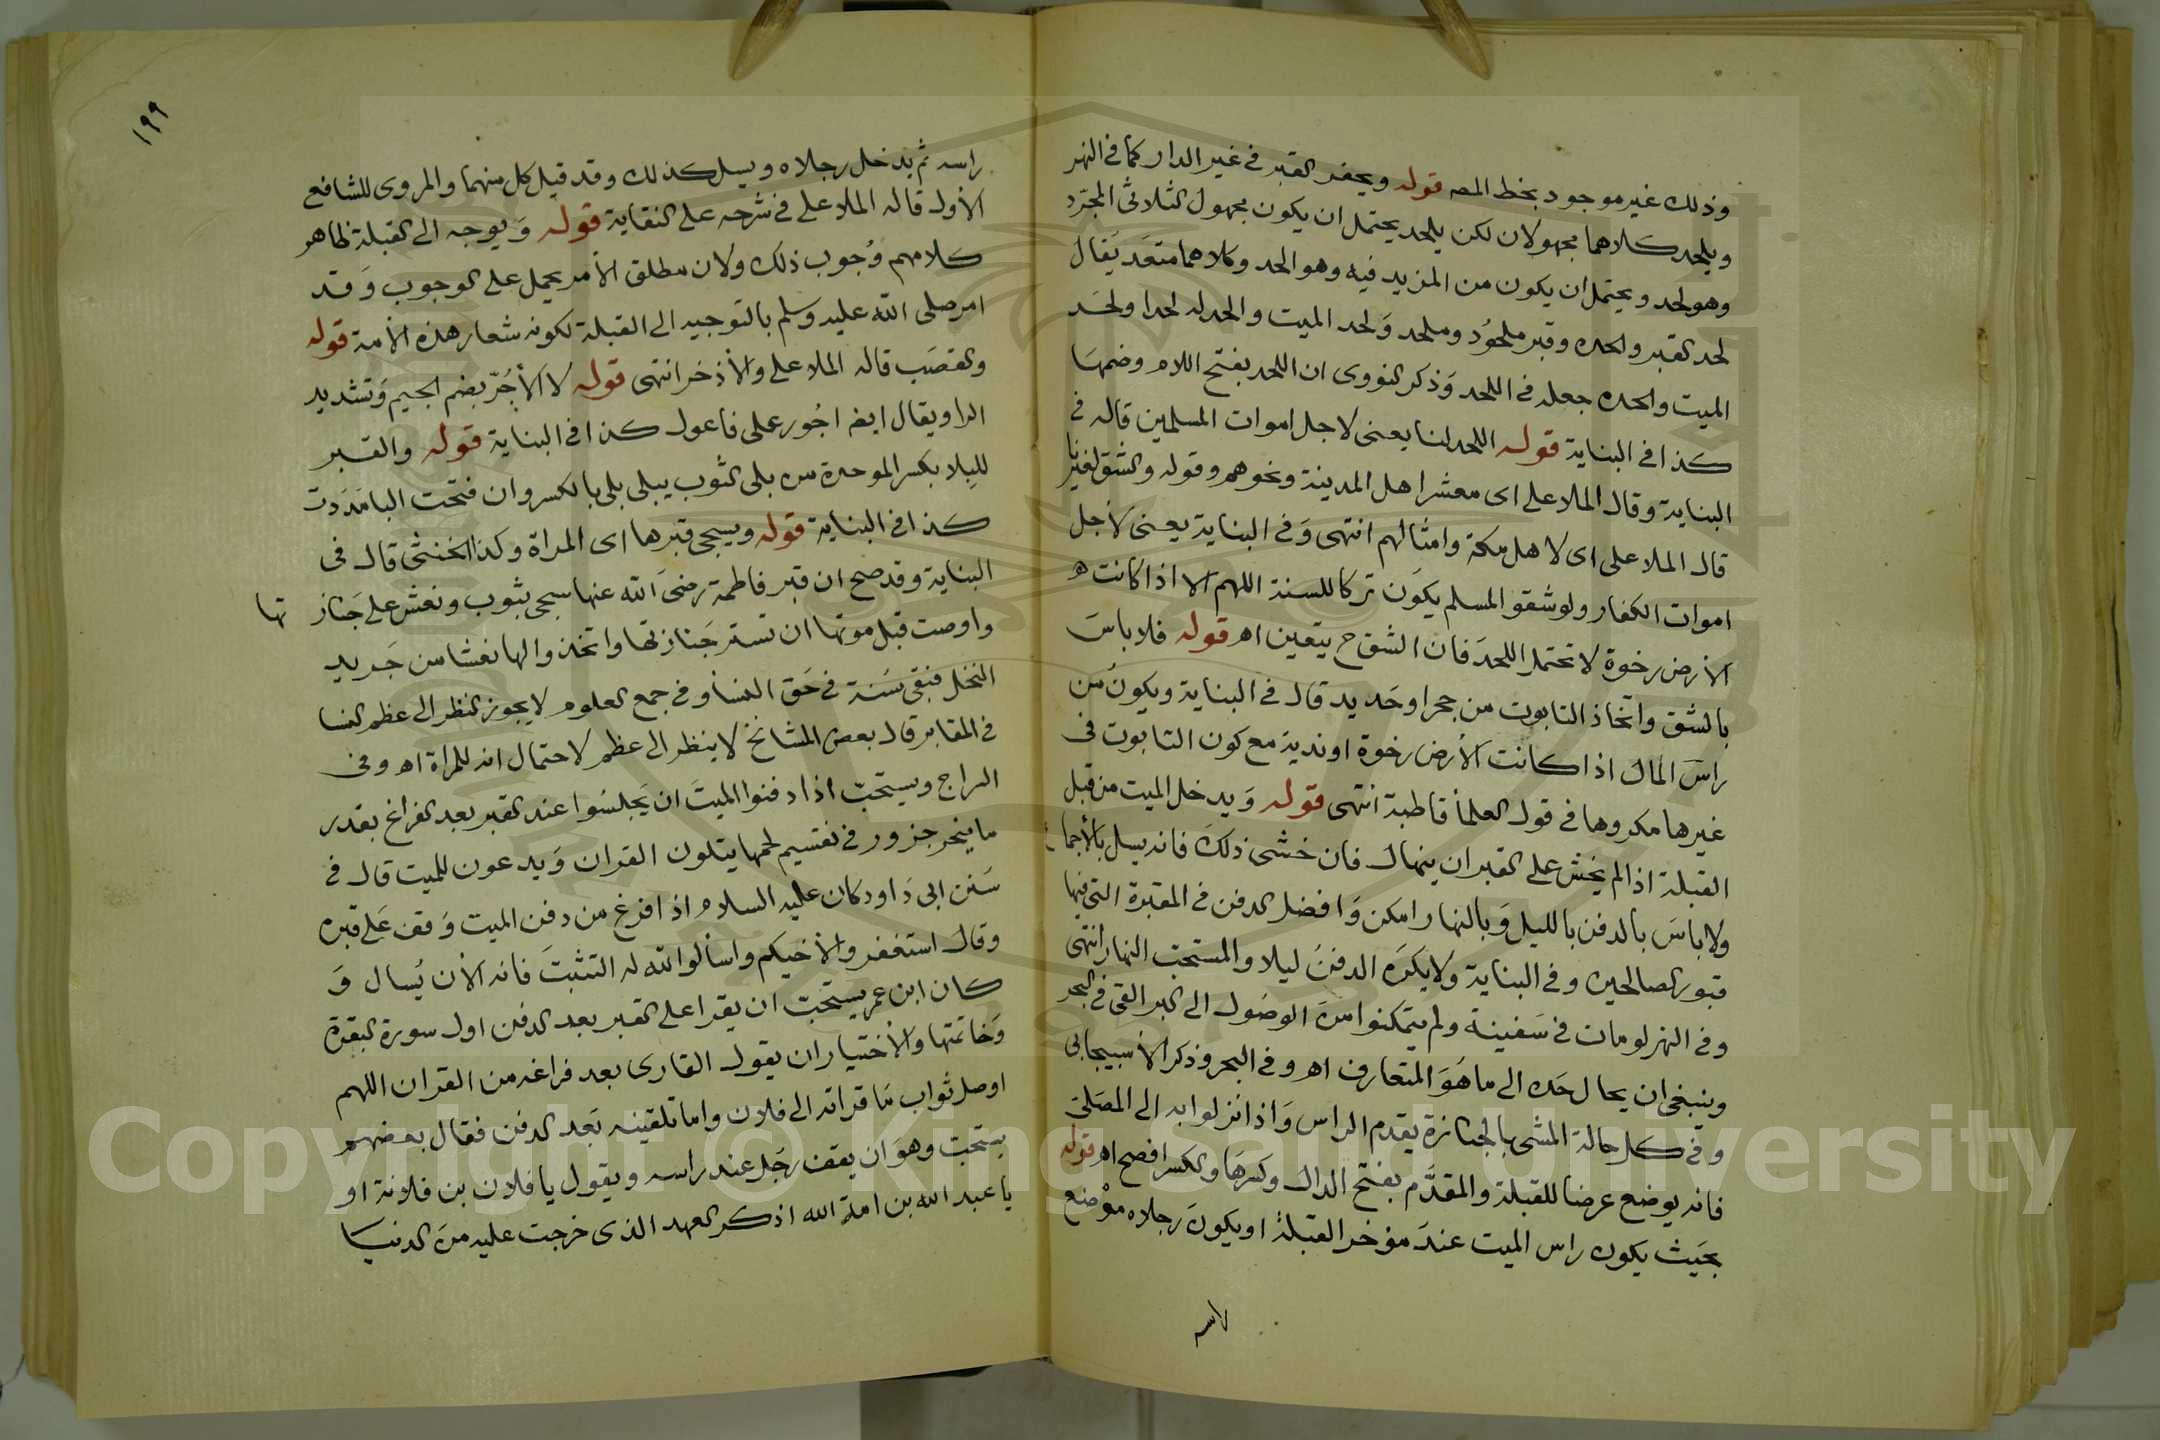 وذلك غير موجود بخط المصه قوله ويحفر القبر في غير الدار كما في النهر
ويلحد كلاهما مجهولان لكن يلحد يحتمل ان يكون مجهول الثلاثى المجرّد
وهو لحد ويحتمل ان يكون من المزيد فيه وهو الحد وكلاهما متعد يقال
لحد القبر والحده وقبر ملحُود وملحد وَلحد الميت والحد له لحدا ولحد
الميت والحده جعله في اللحد وَذكر النووى ان اللحد بفتح اللام وضمهَا
كذا في البناية قوله اللحد لنا يعنى لاجل اموات المسلمين قاله في
البناية وقال الملا على اى معشر اهل المدينة ونحوهم وقوله والشق لغيرنا
قال الملا على اى لاهل مكة وامثالهم انتهى وَفي البناية يعنى لاجل
اموات الكفار ولو شقو المسلم يكون تركا للسنة اللهم الا اذا كانت
الارض رخوة لا تحتمل اللحدَ فان الشق ح يتعين اه قوله فلا باسَ
بالشق واتخاذ التابوت من حجر اوحَديد قال في البناية ويكونُ من
راسَ المال اذا كانت الارض رخوة او ندية مع كون التابوت في
غيرها مكروها في قول العلمأ قاطبة انتهى قوله وَيدخل الميت من قبل
القبلة اذا لم يخش على القبر ان ينهال فان خشى ذلك فانه يسل بالأجماع
ولا باسَ بالدفن بالليل وَبالنهار امكن وَافضل الدفن في المقبرة التى فيها
قبور الصالحين وفي البناية ولا يكرَه الدفنُ ليلا والمستحبّ النهار انتهى
وفي النهر لو مات في سَفينة ولم يتمكنوا منَ الوصُول الى البر القى في البحر
وينبغى ان يحال حَده الى ما هُوَ المتعارف اه وفي البحر وذكر الأسبيجابى
وفي كل حالة المشى بالجنازة يقدم الراس وَاذا نزلوا به الى المصَلى
فانه يوضع عرضا للقبلة والمقدَّم بفتح الدال وكسرَها والكسر افصح اه قوله
بحيَث يكون راس الميت عندَ مؤخر القبلة او يكونَ رجلاه موْضع
راسه
١٩٩
راسه ثم يدخل رجلاه ويسل كذلك وقد قيل كل منهما والمروى للشافع
الأول قاله الملا على في شرحه على النقاية قوله وَيوجه الى القبلة ظاهر
كلامهم وُجوب ذلك ولان مطلق الأمر يحمل على الوجوب وَقد
امر صلى الله عليه وسلم بالتوجيه الى القبلة لكونه شعار هذه الأمة قوله
والقصَب قاله الملا على والأذخر انتهى قوله لا الأجُرّ بضم الجيم وَتشديد
الرا ويقال ايضا اجُور على فاعول كذا في البناية قوله والقبر
للبِلا بكسر الموحدة من بلى الثوب يبلى بلى بالكسر وان فتحت البا مَدَدت
كذا في البناية قوله ويسجى قبرها اى المراة وكذا الخنثى قال في
البناية وقد صح ان قبر فاطمة رضىَ الله عنها سجى بثوب ونعش على جَناز تها
واوصت قبل موتها ان تستر جَنازتها واتخذوا لها نعشا من جَريد
النخل فبقى سُنة في حَق النسأ وفي جمع العلوم لا يجوز النظر الى عظم النسا
في المقابر قال بعض المشائخ لا ينظر الى عظم لاحتمال انه للمراة اه وفي
السراج ويستحبّ اذا دفنوا الميتَ ان يَجلسُوا عند القبر بعد الفراغ بقدر
ما ينحر جزور في نقسيم لحمها يتلون القران وَيدعون للميت قال في
سَنن ابى دَاود كان عليه السلام اذا فرغ من دفن الميت وَقف عَلى قبره
وقال استغفروا لأخيكم واسألوا الله له التثبتَ فانه الأن يُسال وَ
كان ابن عمر يستحبّ ان يقرا على القبر بعد الدفن اول سورة البقرة
وَخاتمتها والأختيار ان يقول القارى بعد فراغه من القران اللهم
اوصل ثواب مَا قراته الى فلان واما تلقينه بَعد الدفن فقال بعضهم
يستحبّ وهوَ ان يقف رجَل عند راسه ويقول يا فلان بن فلانة او
يا عبد الله بن امة الله اذكر العهد الذى خرجت عليه منَ الدنيا
Copyright © King Saud University